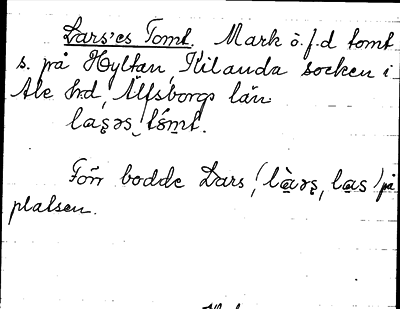 Lars'es Tomt. Mark o. f.d tomt
s. på Hyltan, Kilanda socken i
Ale hrd, Älfsborgs län
Förr bodde Lars
på
platsen.